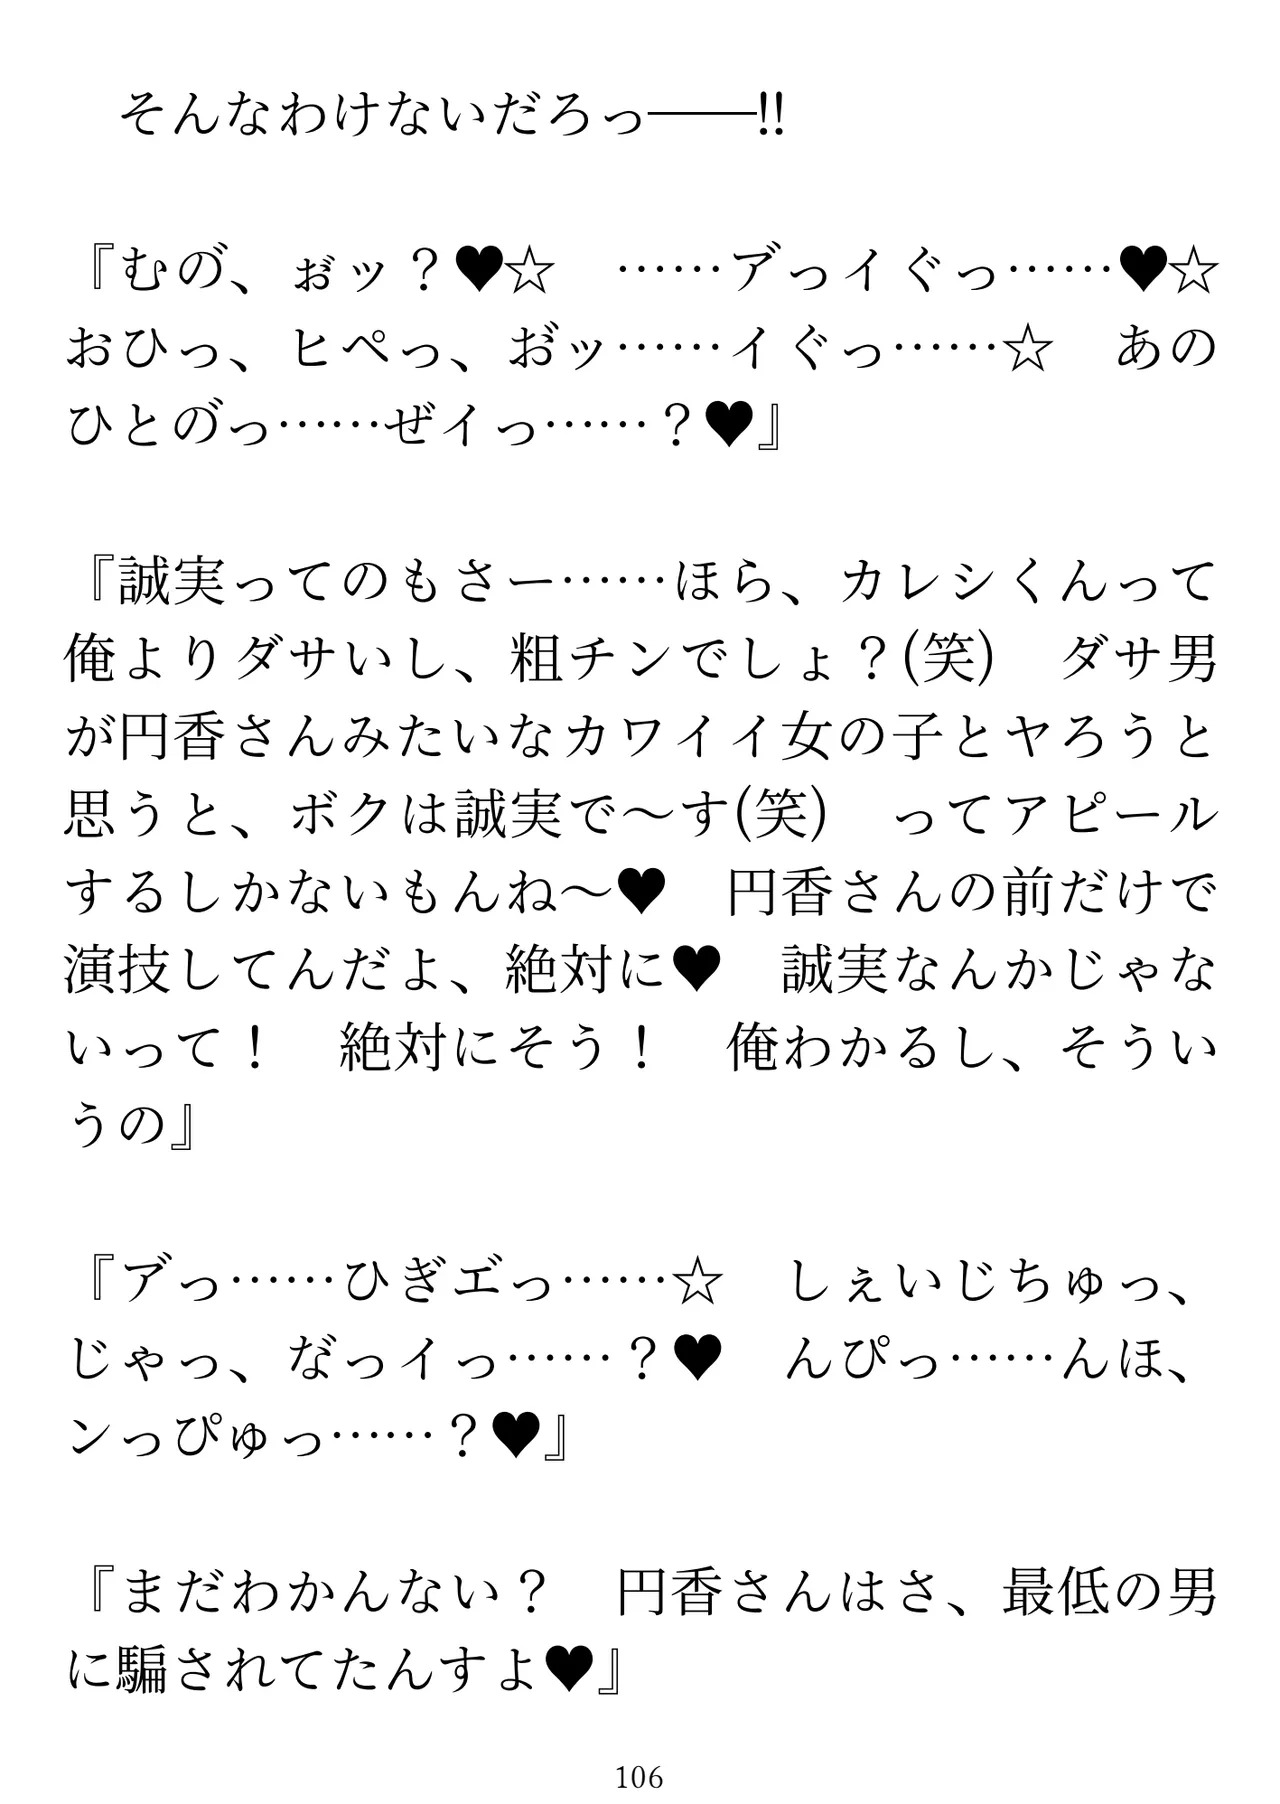 そんなわけないだろっ――!!
『むの゛、ぉ゛ッ？♥☆　……ア゛っイぐっ……♥☆
おひっ、ヒペっ、お゛ッ……イぐっ……☆　あの
ひとの゛っ……ぜイっ……？♥』
『誠実ってのもさー……ほら、カレシくんって
俺よりダサいし、粗チンでしょ？(笑)　ダサ男
が円香さんみたいなカワイイ女の子とヤろうと
思うと、ボクは誠実で～す(笑)　ってアピール
するしかないもんね～♥　円香さんの前だけで
演技してんだよ、絶対に♥　誠実なんかじゃな
いって！　絶対にそう！　俺わかるし、そうい
うの』
『ア゛っ……ひぎエ゛っ……☆　しぇいじちゅっ、
じゃっ、な゛っイっ……？♥　んぴっ……んほ、
ンっぴゅっ……？♥』
『まだわかんない？　円香さんはさ、最低の男
に騙されてたんすよ♥』
106